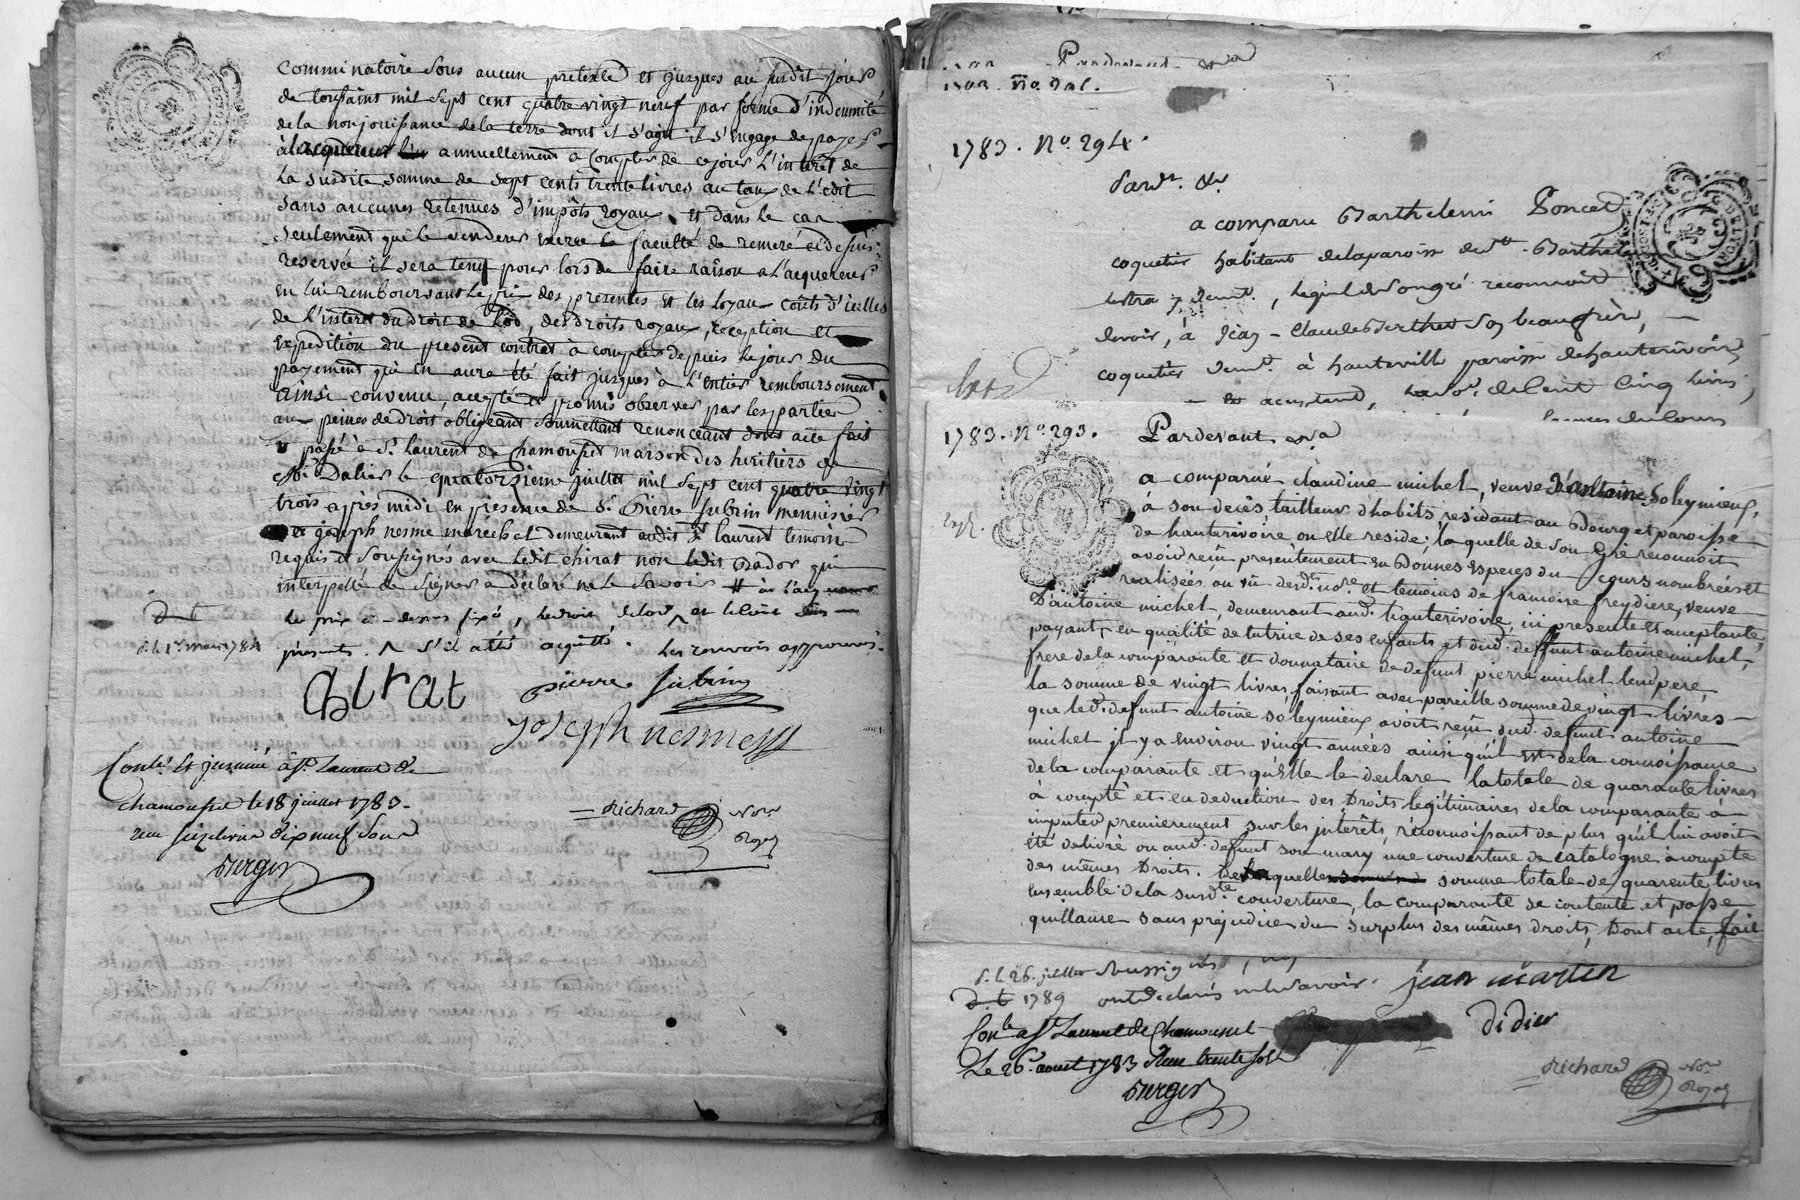 comminatoire sous aucun pretexte et jusques au susdit jour
de toussaints mil sept cent quatre vingt neuf par forme d'indemnité
de la nonjouissance de la terre dont il s'agit il s'engage de payer
à l'acquereur annuellement à compter de ce jour l'interêt de
la susdite somme de sept cents trente livres au taux de l'edit
sans aucunes retenues d'impôts royaux et dans le cas
seulement que le vendeur la faculté de remeré ci dessus
reservée il sera tenu pour lors de faire raison a l'acquereur
en lui remboursant le prix des presentes et les loyaux coûts d'icelles
de l'interet du droit de lod, des droits royaux, reception et
expedition du present contrat à compter depuis le jour du
payement qui en aura été fait jusques à l'entier remboursement
ainsi convenu, accepté et promis observer par les parties
aux peines de droit, obligeant soumettant renonceant dont acte fait
et passé à St. Laurent de Chamousset maison des heritiers de
Dalier le quatorzieme juillet mil sept cent quatre vingt
trois après midi en presence de Sr. Pierre Subrin menuisier
et joseph nesme marechal demeurant audit St laurent temoins
requis et soussignés avec ledit chirat non ledit Bador qui
interpellé de signer a déclaré ne le savoir
le prix ci-dessus fixé, le droit de lod, et le coût des
présentes. s'il a été acquitté. les renvois approuvés.
D t
d. le 1er. mars 1784
Chirat
pierre subrin
Joseph nesme
Contlé. et insinué à St. Laurent de
chamousset le 18 juillet 1783.
reçu seize livres dix neuf sous
Durger
Richard
Nore
Royal
Pardevant
1783. No. 294.
Pardt. &a
a comparu Barthelemi Poncet
coquetier habitant de la paroisse de St. Barthele
lestra y demt., lequel de son gré reconnoit
devoir, à Jean-Claude Berthet son beaufrère,
coquetier demt. à hauteville paroisse de hauterivoire
acceptant, la so. de cent cinq livres
1783. No. 293. Pardevant &a
exp.
a comparu claudine michel, veuve d'antoine Soleymieux,
à son deces tailleur d'habits residant au Bourg et paroisse
de hauterivoire ou elle reside; la quelle de son gré reconnoit
avoir reçu presentement en bonnes especes du cours nombrées et
realisées au vu desd. nore. et temoins de francoise freydiere, veuve
D'antoine michel, demeurant aud. hauterivoire, ici presente et acceptante,
payant, en qualité de tutrice de ses enfants et dud. deffunt antoine michel,
frere de la comparante et donnataire de defunt pierre michel leur pere,
la somme de vingt livres, faisant avec pareille somme de vingt livres
que led. defunt antoine soleymieux avoit reçu dud. defunt antoine
michel il y a environ vingt années ainsi qu'il est de la connoissance
de la comparante et qu'elle le declare la totale de quarante livres
à compte et en deduction des Droits légitimaires de la comparante à
imputer premierement sur les interêts, réconnoissant de plus qu'il lui avoit
été délivré ou aud. defunt son mary une couverture de catalogne à compte
des mêmes Droits. De laquelle somme totale de quarente livres
ensemble de la susdte. couverture, la comparante se contente et passe
quittance sans prejudice du surplus des mêmes droits, Dont acte, fait
d. le 26. juillet
D. t 1789
soussignés,
ont déclarés ne le savoir. jean martin
Didier
Conlé à St. Laurent de Chamousset
Le 26. aout 1783 Reçu trente sols
Durger
Richard
Nore
Royal